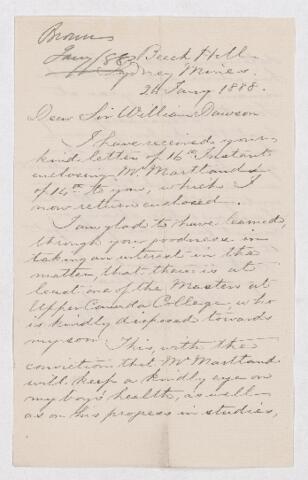 Brown
Jany/88 Beech Hill
Sydney Mines.
24 Jany 1888.
Dear Sir William Dawson
I have received your
kind letter of 16th Instant
enclosing Mr Martland's
of 14th to you, which I
now return enclosed.
I am glad to have learned,
through your goodness in
taking an interest in the
matter, that there is at
least one of the Masters at
Upper Canada College, who
is kindly disposed towards
my son. This, with the
conviction that Mr Martland
will keep a kindly eye on
my boy's health, as well
as on his progress in studies,